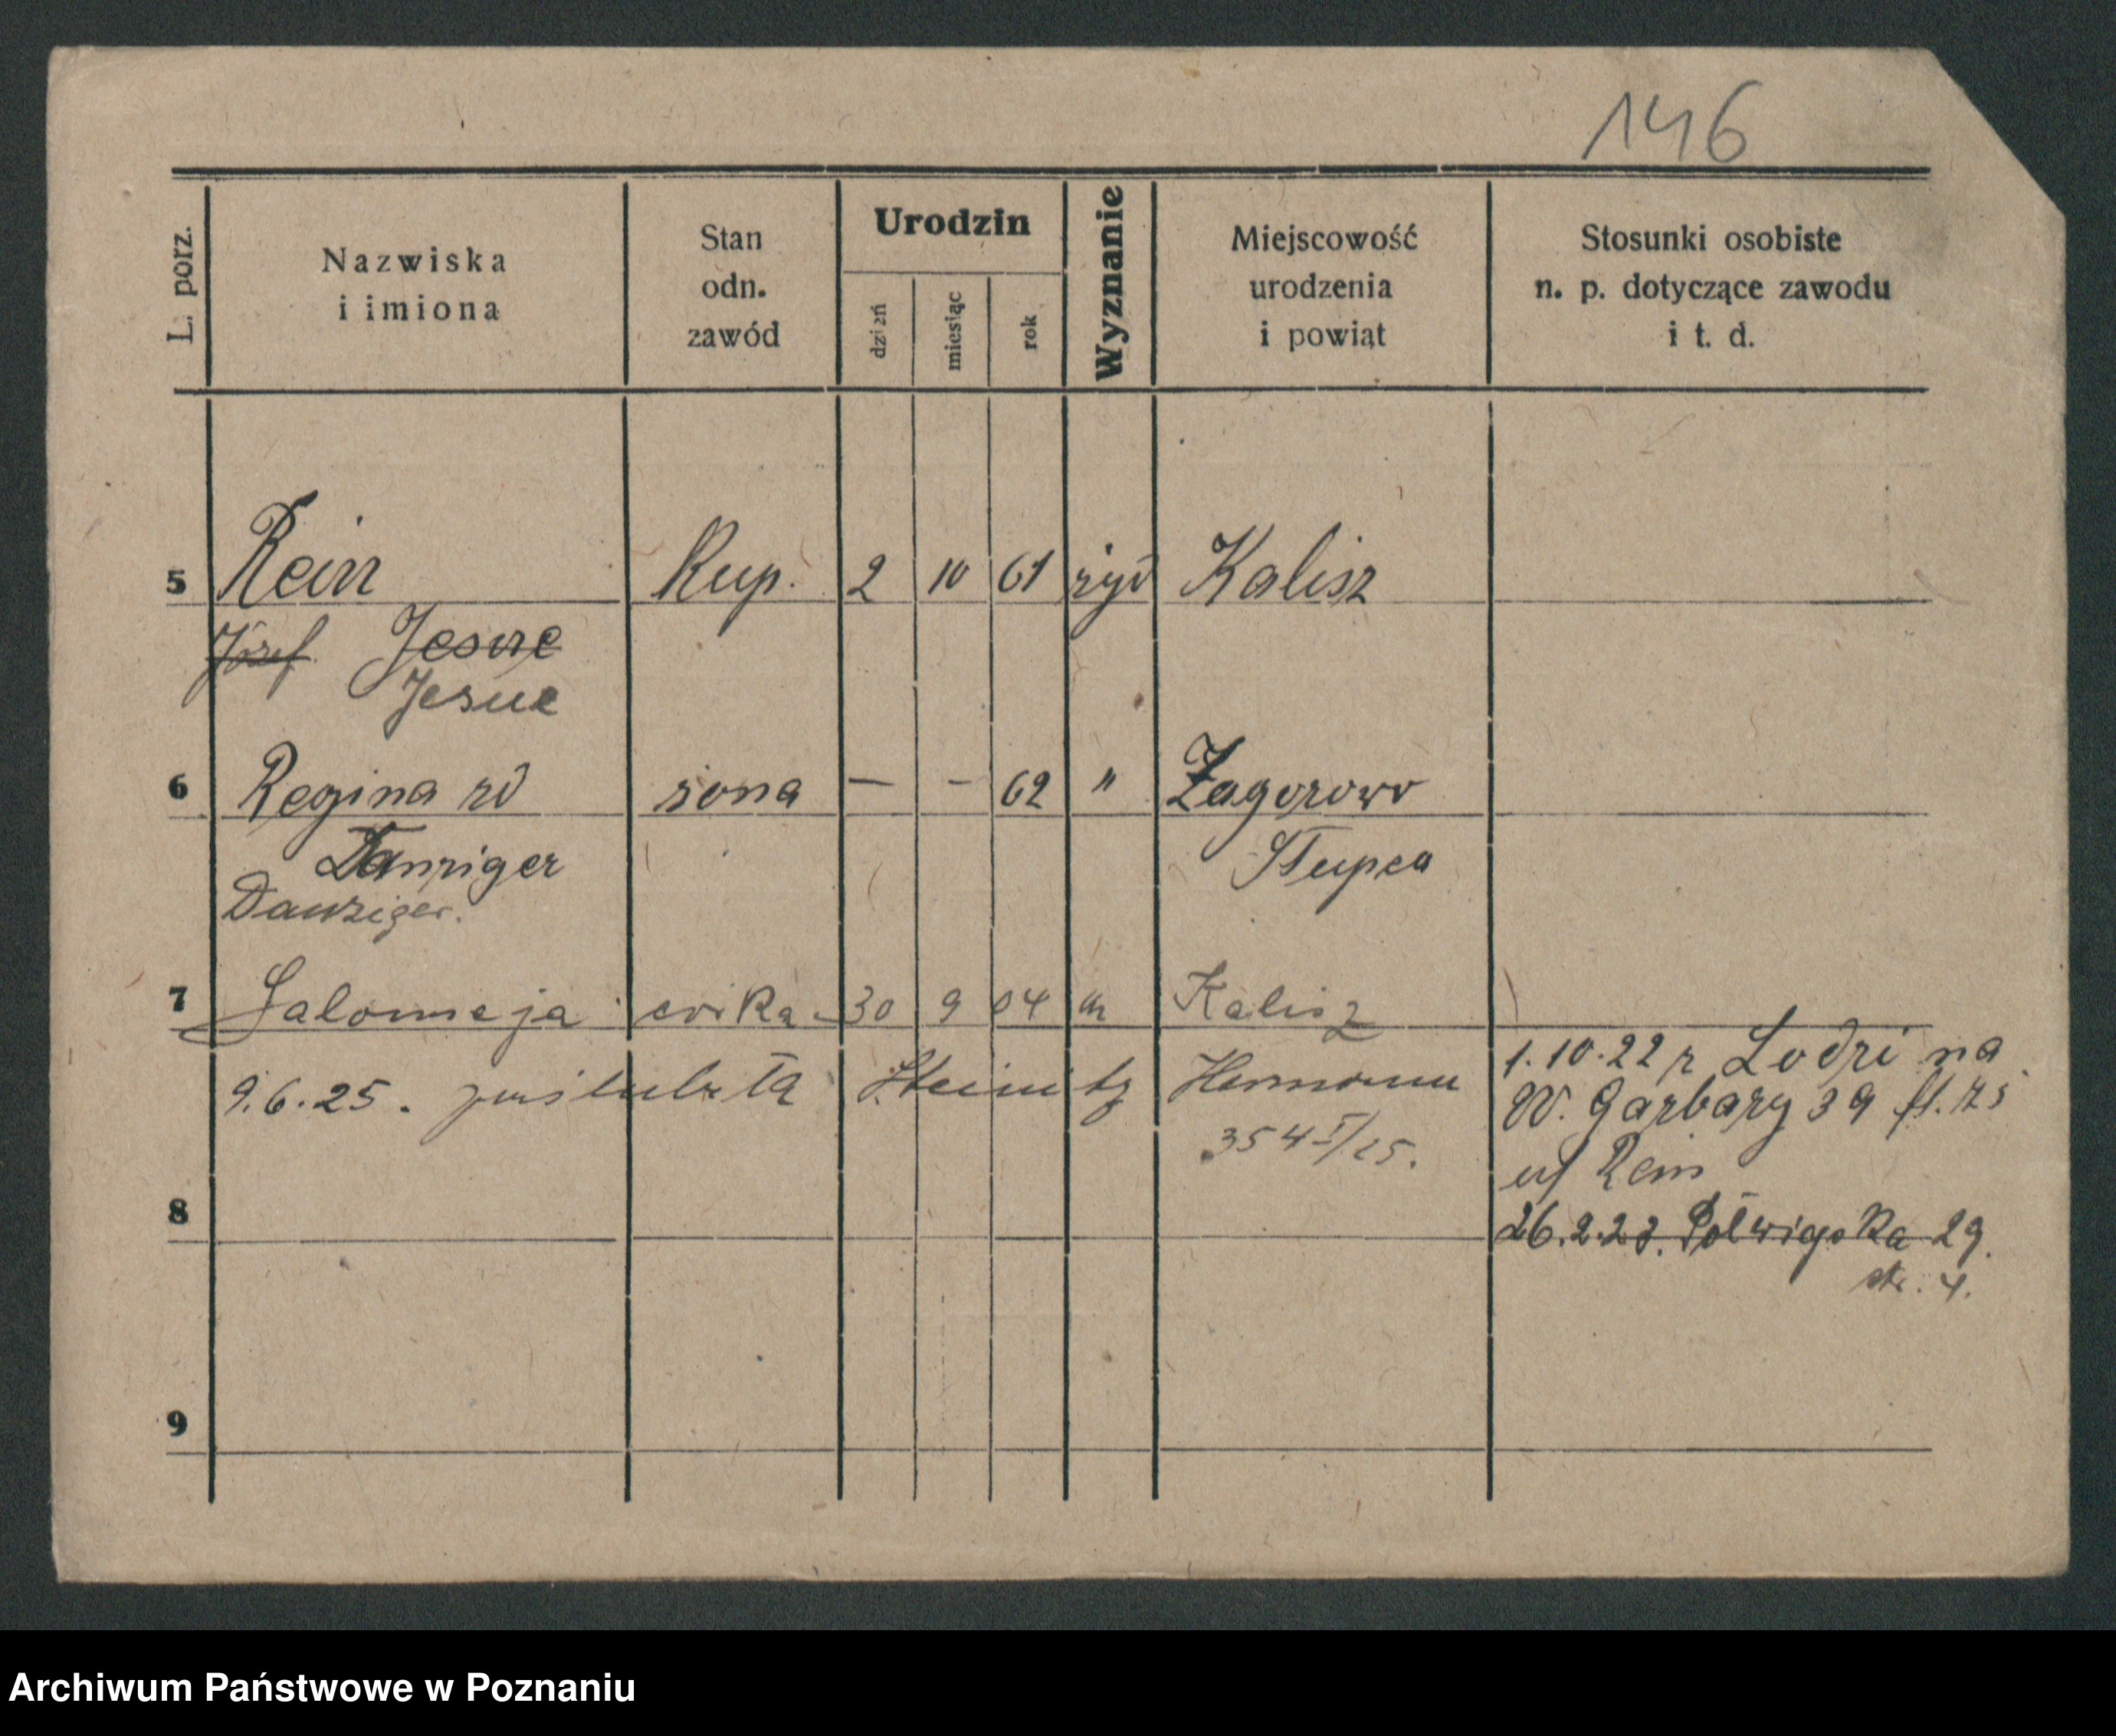 146
L. porz.
Nazwiska
i imiona
Stan
odn.
zawód
Urodzin
dzień
miesiąc
rok
Wyznanie
Miejscowość
urodzenia
i powiąt
Stosunki osobiste
n. p. dotyczące zawodu
i t. d.
5 Rein Kup. 2 10 61 żyd Kalisz
Józef Jesue
Jesue
6 Regina zd żona — - 62 " Zagorowo
Danziger Słupca
Danziger.
7 Salomeja córka 30 9 04 Kalisz
9.6.25. poślubiła Steinitz Hermann
354 I/25.
1.10.22 z Lodzi na
W. Garbary 39
u/ Rein
8
26.2.23. Półwiejska 29.
str. 4.
9
Archiwum Państwowe w Poznaniu